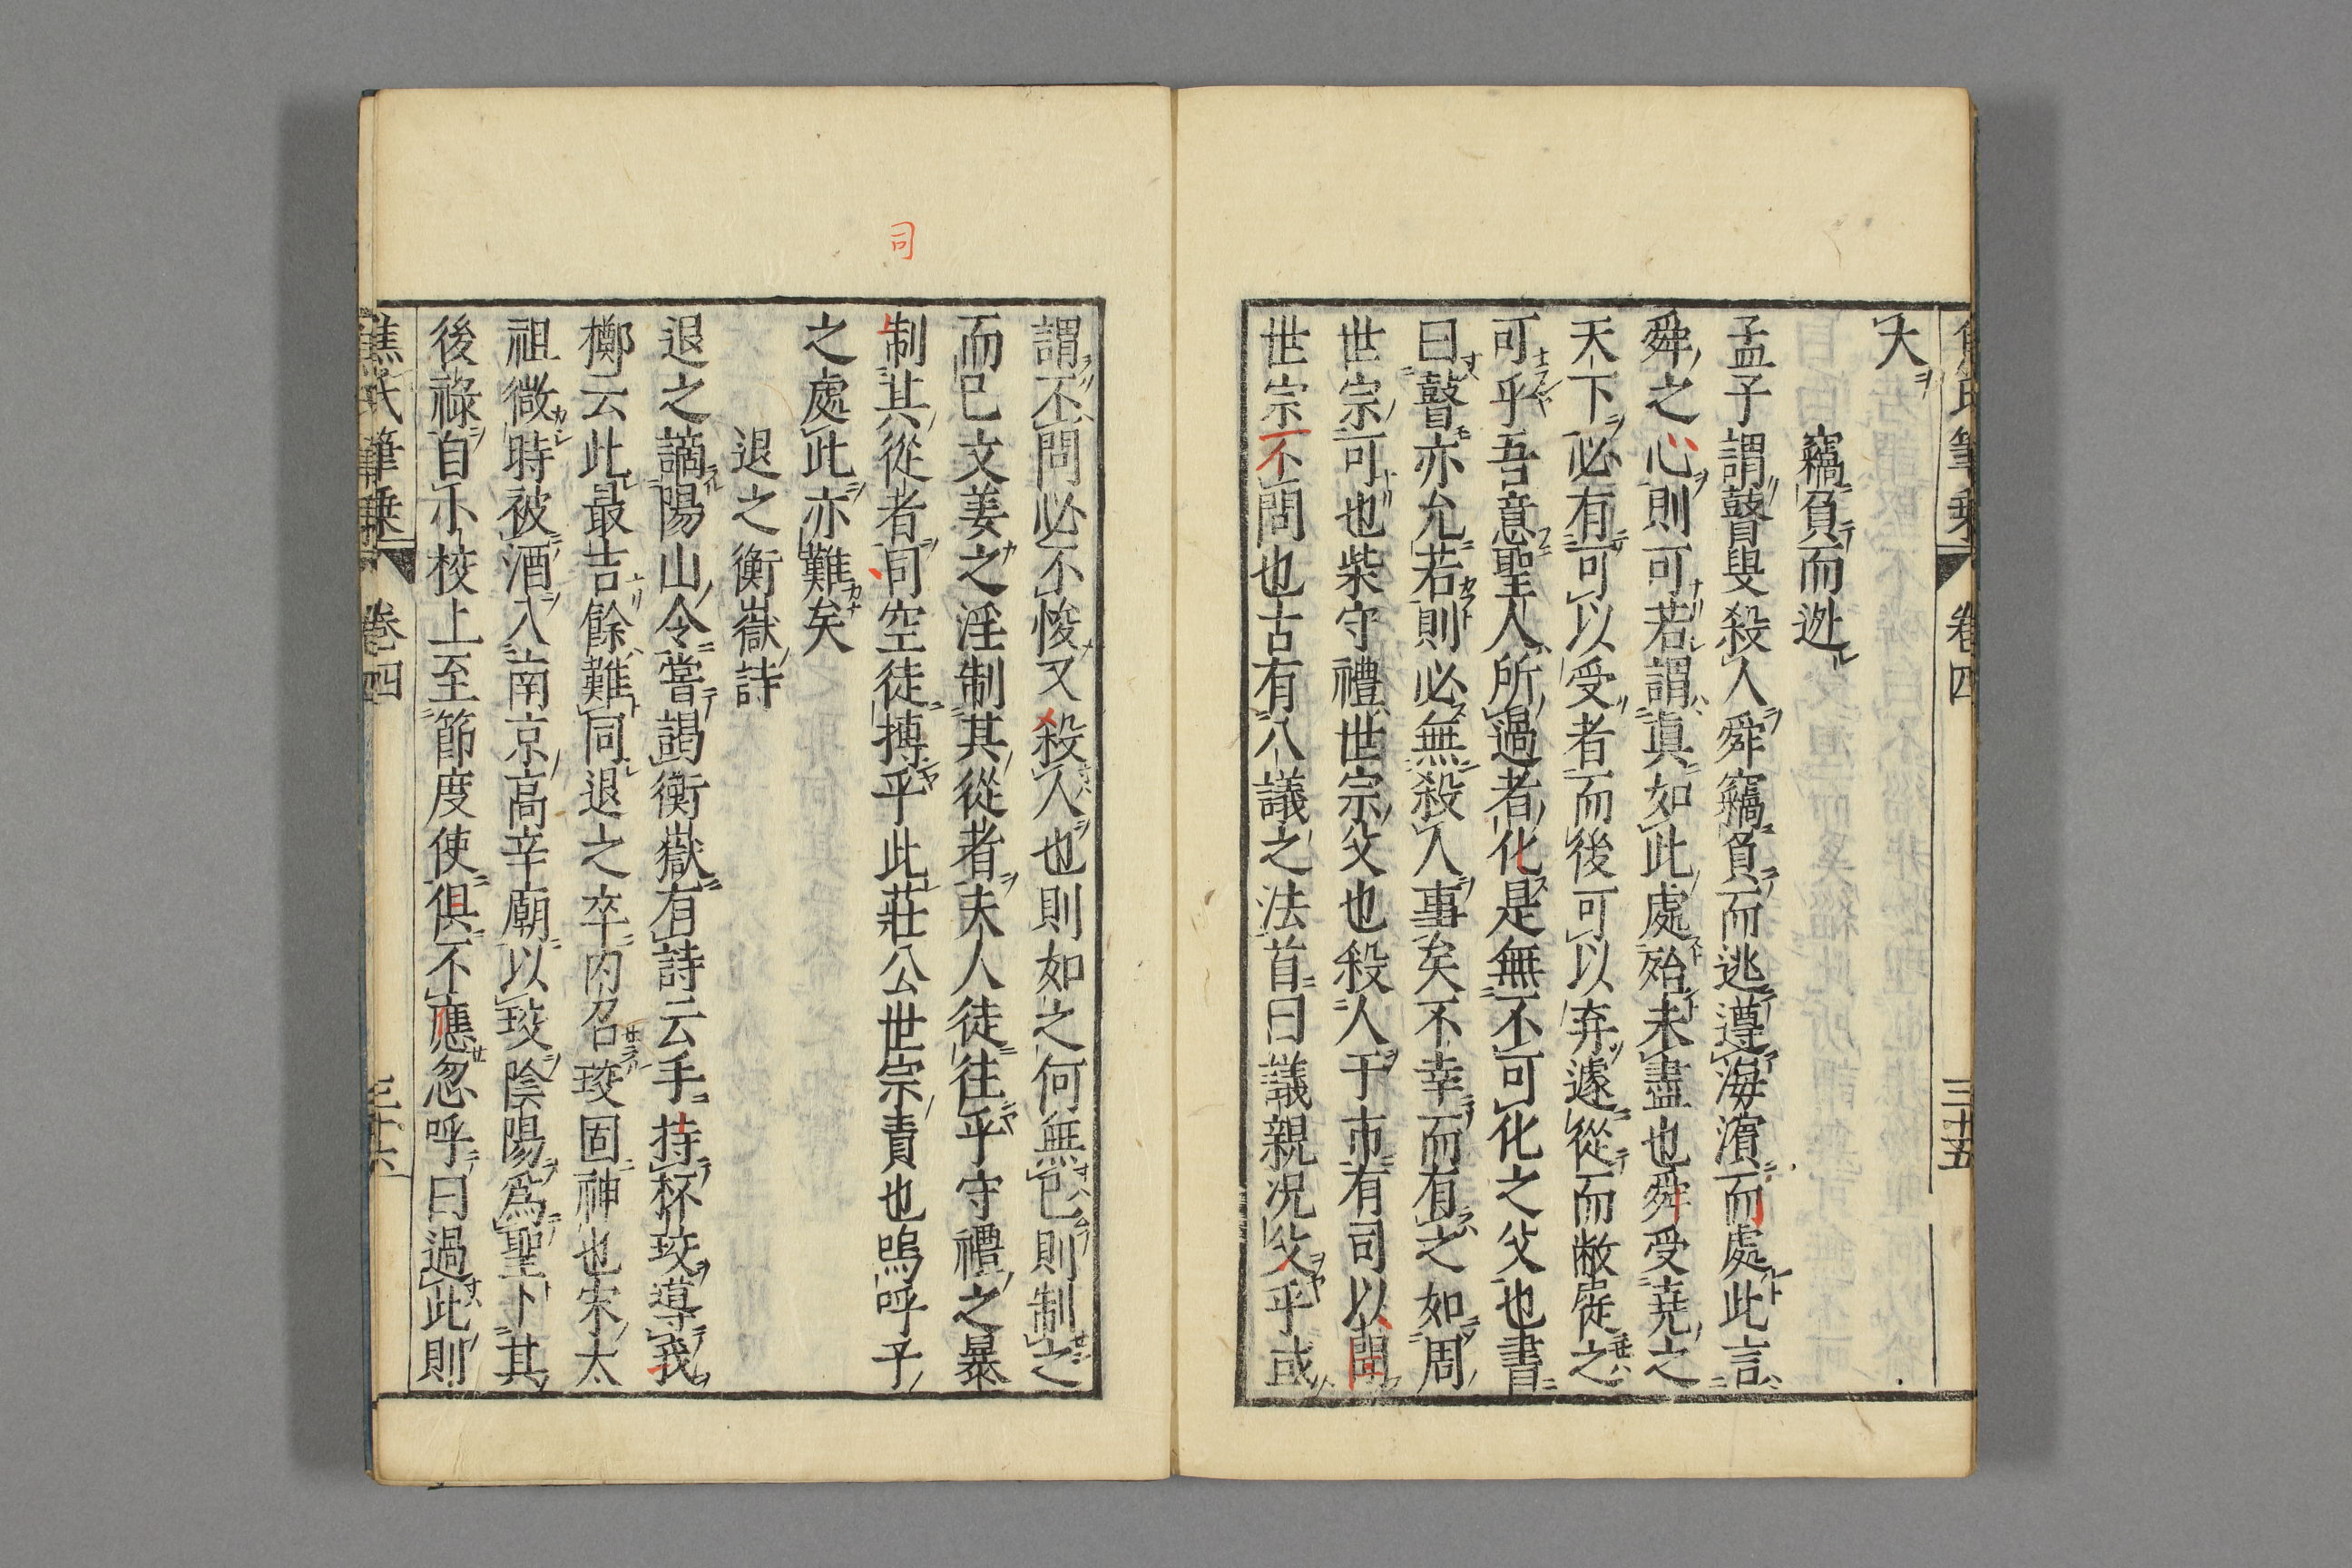 焦氏筆乗 卷四 三十五
大
竊負而逃
孟子謂瞽叟殺人舜竊負而逃遵海濵而處此言
舜之心則可若謂眞如此處殆未盡也舜受尭之
天下必有可以受者而後可以弃遽從而敝屣之
可乎吾意聖人所過者化是無不可化之父也書
曰瞽亦允若則必無殺人事矣不幸而有之如周
世宗可也柴守禮世宗父也殺人于市有司以聞
世宗不問也古有八議之法首曰議親况父乎或
謂不問必不悛又殺人也則如之何無已則制之
而已文姜之淫制其從者夫人徒往乎守禮之暴
制其從者同空徒摶乎此莊公世宗責也嗚呼予
之處此亦難矣
退之衡嶽詩
退之謫陽山令嘗謁衡嶽有詩云手持杯珓導我
擲云此最吉餘難同退之卒内召珓固神也宋太
祖微時被酒入南京高辛廟以珓陰陽爲聖卜其
後祿自小校上至節度使俱不應忽呼曰過此則
焦氏筆乗 卷四 三十六
司